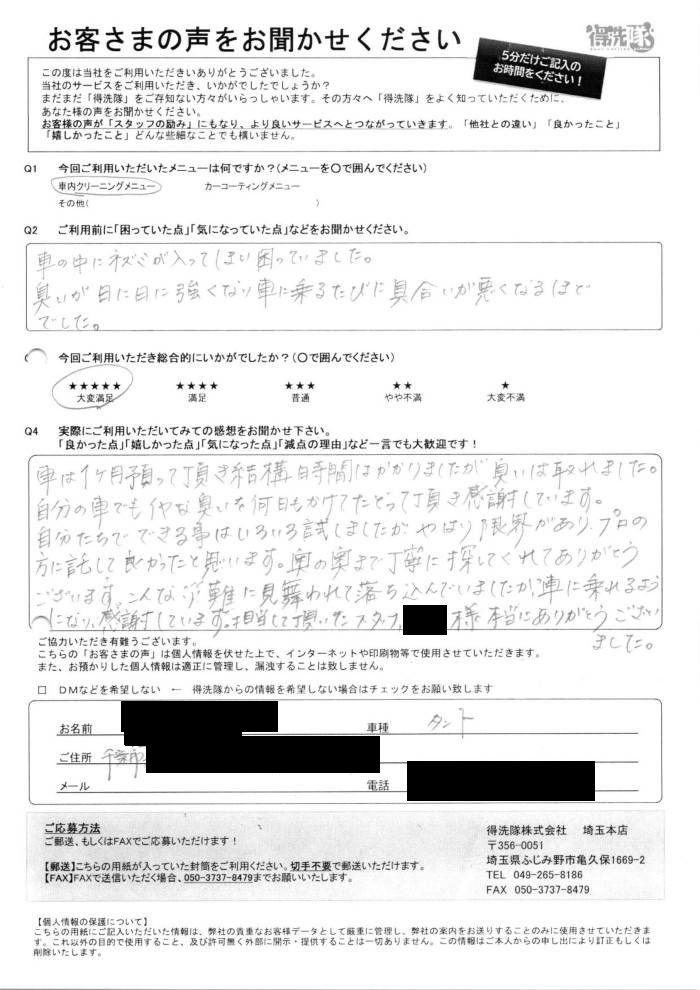 お客さまの声をお聞かせください
得洗隊
5分だけご記入の
お時間をください!
この度は当社をご利用いただきいありがとうございました。
当社のサービスをご利用いただき、いかがでしたでしょうか?
まだまだ「得洗隊」をご存知ない方々がいらっしゃいます。その方々へ「得洗隊」をよく知っていただくために、
あなた様の声をお聞かせください。
お客様の声が「スタッフの励み」にもなり、より良いサービスへとつながっていきます。「他社との違い」「良かったこと」
「嬉しかったこと」どんな些細なことでも構いません。
Q1 今回ご利用いただいたメニューは何ですか?(メニューを〇で囲んでください)
車内クリーニングメニュー カーコーティングメニュー
その他( )
Q2 ご利用前に「困っていた点」「気になっていた点」などをお聞かせください。
車の中にネズミが入ってしまい困っていました。
臭いが日に日に強くなり車に乗るたびに具合いが悪くなるほど
でした。
今回ご利用いただき総合的にいかがでしたか?(〇で囲んでください)
★★★★★ ★★★★ ★★★ ★★ ★
大変満足 満足 普通 やや不満 大変不満
Q4 実際にご利用いただいてみての感想をお聞かせ下さい。
「良かった点」「嬉しかった点」「気になった点」「減点の理由」など一言でも大歓迎です!
車は1ヶ月預って頂き結構日時間はかかりましたが臭いは取れました。
自分の車でもイヤな臭いを何日もかけてたどって頂き感謝しています。
自分たちでできる事はいろいろ試しましたが、やはり限界があり、プロの
方に託して良かったと思います。奥の奥まで丁寧に探してくれてありがとう
ございます。こんな災難に見舞われて落ち込んでいましたが車に乗れるよう
になり、感謝しています。担当して頂いたスタッフ、 様本当にありがとうござい
ました。
ご協力いただき有難うございます。
こちらの「お客さまの声」は個人情報を伏せた上で、インターネットや印刷物等で使用させていただきます。
また、お預かりした個人情報は適正に管理し、漏洩することは致しません。
□ DMなどを希望しない ← 得洗隊からの情報を希望しない場合はチェックをお願い致します
お名前 車種 タント
ご住所 千葉市
メール 電話
ご応募方法
ご郵送、もしくはFAXでご応募いただけます!
【郵送】こちらの用紙が入っていた封筒をご利用ください。切手不要で郵送いただけます。
【FAX】FAXで送信いただく場合、050-3737-8479までお願いいたします。
得洗隊株式会社 埼玉本店
〒356-0051
埼玉県ふじみ野市亀久保1669-2
TEL 049-265-8186
FAX 050-3737-8479
【個人情報の保護について】
こちらの用紙にご記入いただいた情報は、弊社の貴重なお客様データとして厳重に管理し、弊社の案内をお送りすることのみに使用させていただきま
す。これ以外の目的で使用すること、及び許可無く外部に開示・提供することは一切ありません。この情報はご本人からの申し出により訂正もしくは
削除いたします。